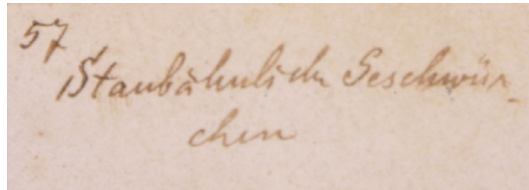 57
Staubähnliche Geschwür-
chen